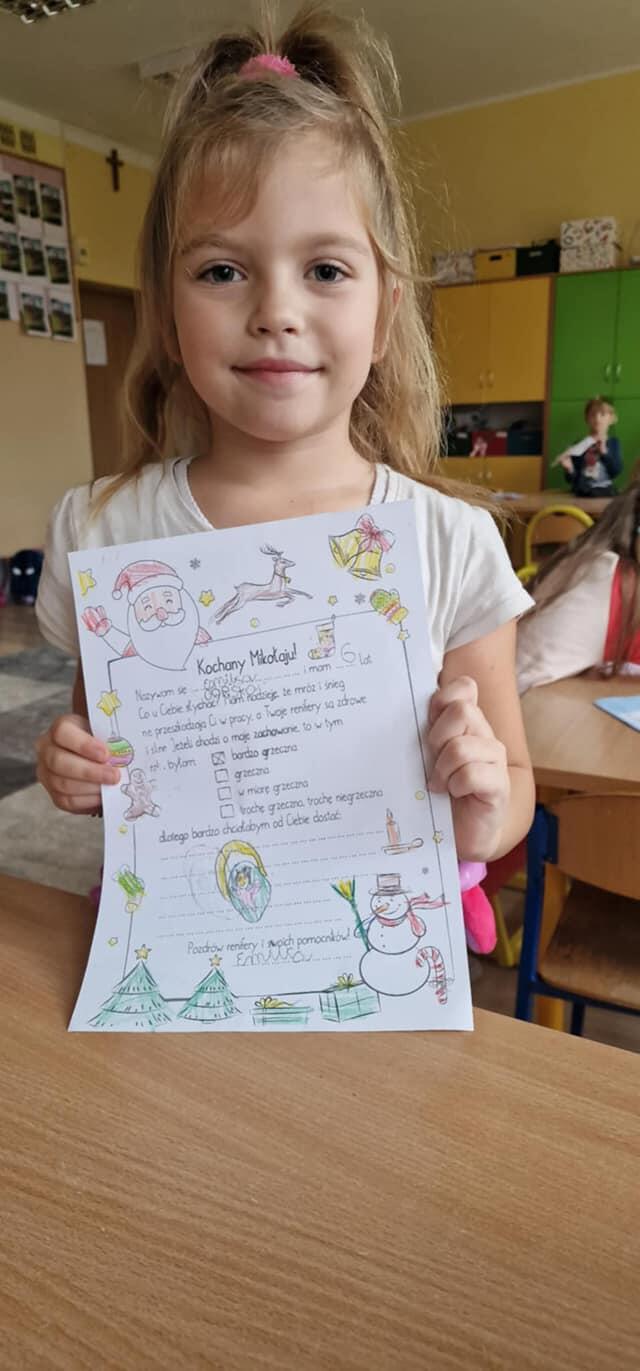 Kochany Mikołaju!
Nazywam się Emilka i mam 6 lat
Co u Ciebie słychać? Mam nadzieję, że mróz i śnieg
nie przeszkadzają Ci w pracy, a Twoje renifery są zdrowe
i silne. Jeżeli chodzi o moje zachowanie, to w tym
roku byłam
bardzo grzeczna
grzeczna
w miarę grzeczna
trochę grzeczna, trochę niegrzeczna
dlatego bardzo chciałabym od Ciebie dostać:
Pozdrów renifery i swoich pomocników!
Emilka